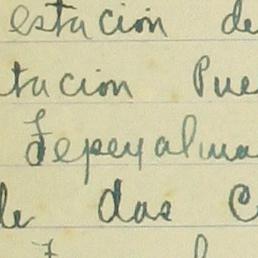 estación de
tación Pue
Tepeyalma
de das C